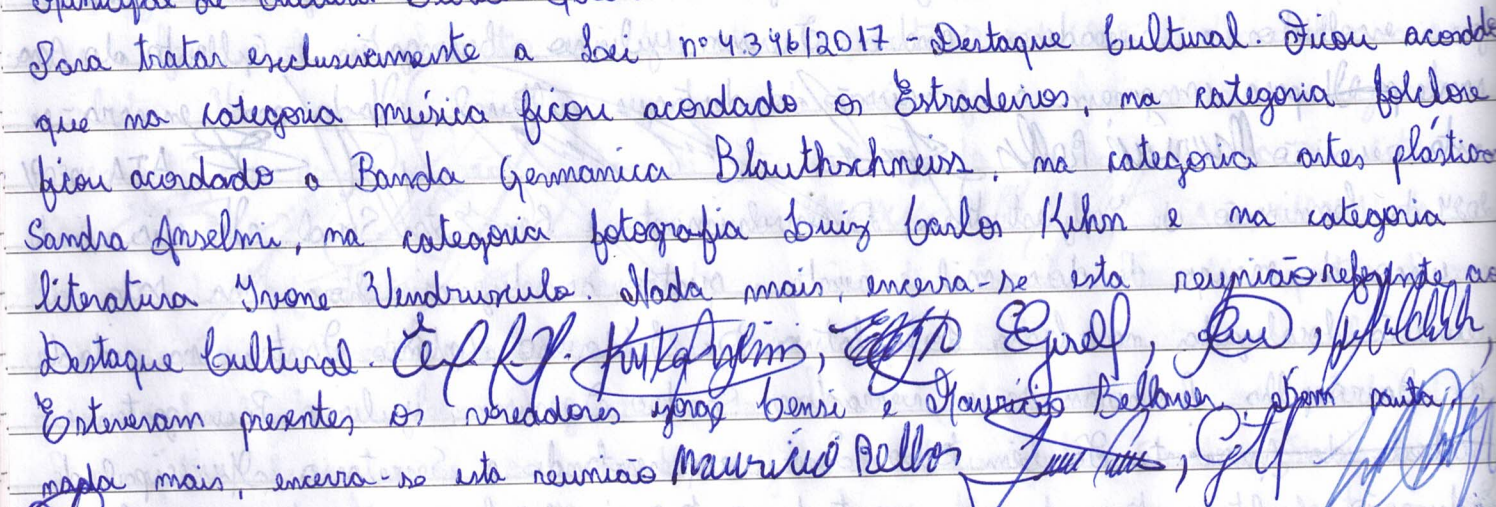 Para tratar exclusivamente a Lei nº 4346/2017 - Destaque Cultural. Ficou acordado
que na categoria música ficou acordado os Estradeiros, na categoria folclore
ficou acordado a Banda Germanica Blauthschneiss, na categoria artes plásticas
Sandra Anselmi, na categoria fotografia Luiz Carlos Kehn e na categoria
literatura Ivone Vendrusculo. Nada mais, encerra-se esta reunião referente ao
Destaque Cultural.
Estiveram presentes os vereadores Jorge Cenci e Mauricio Bellaver. Sem pauta,
nada mais, encerra-se esta reunião Mauricio Bellov